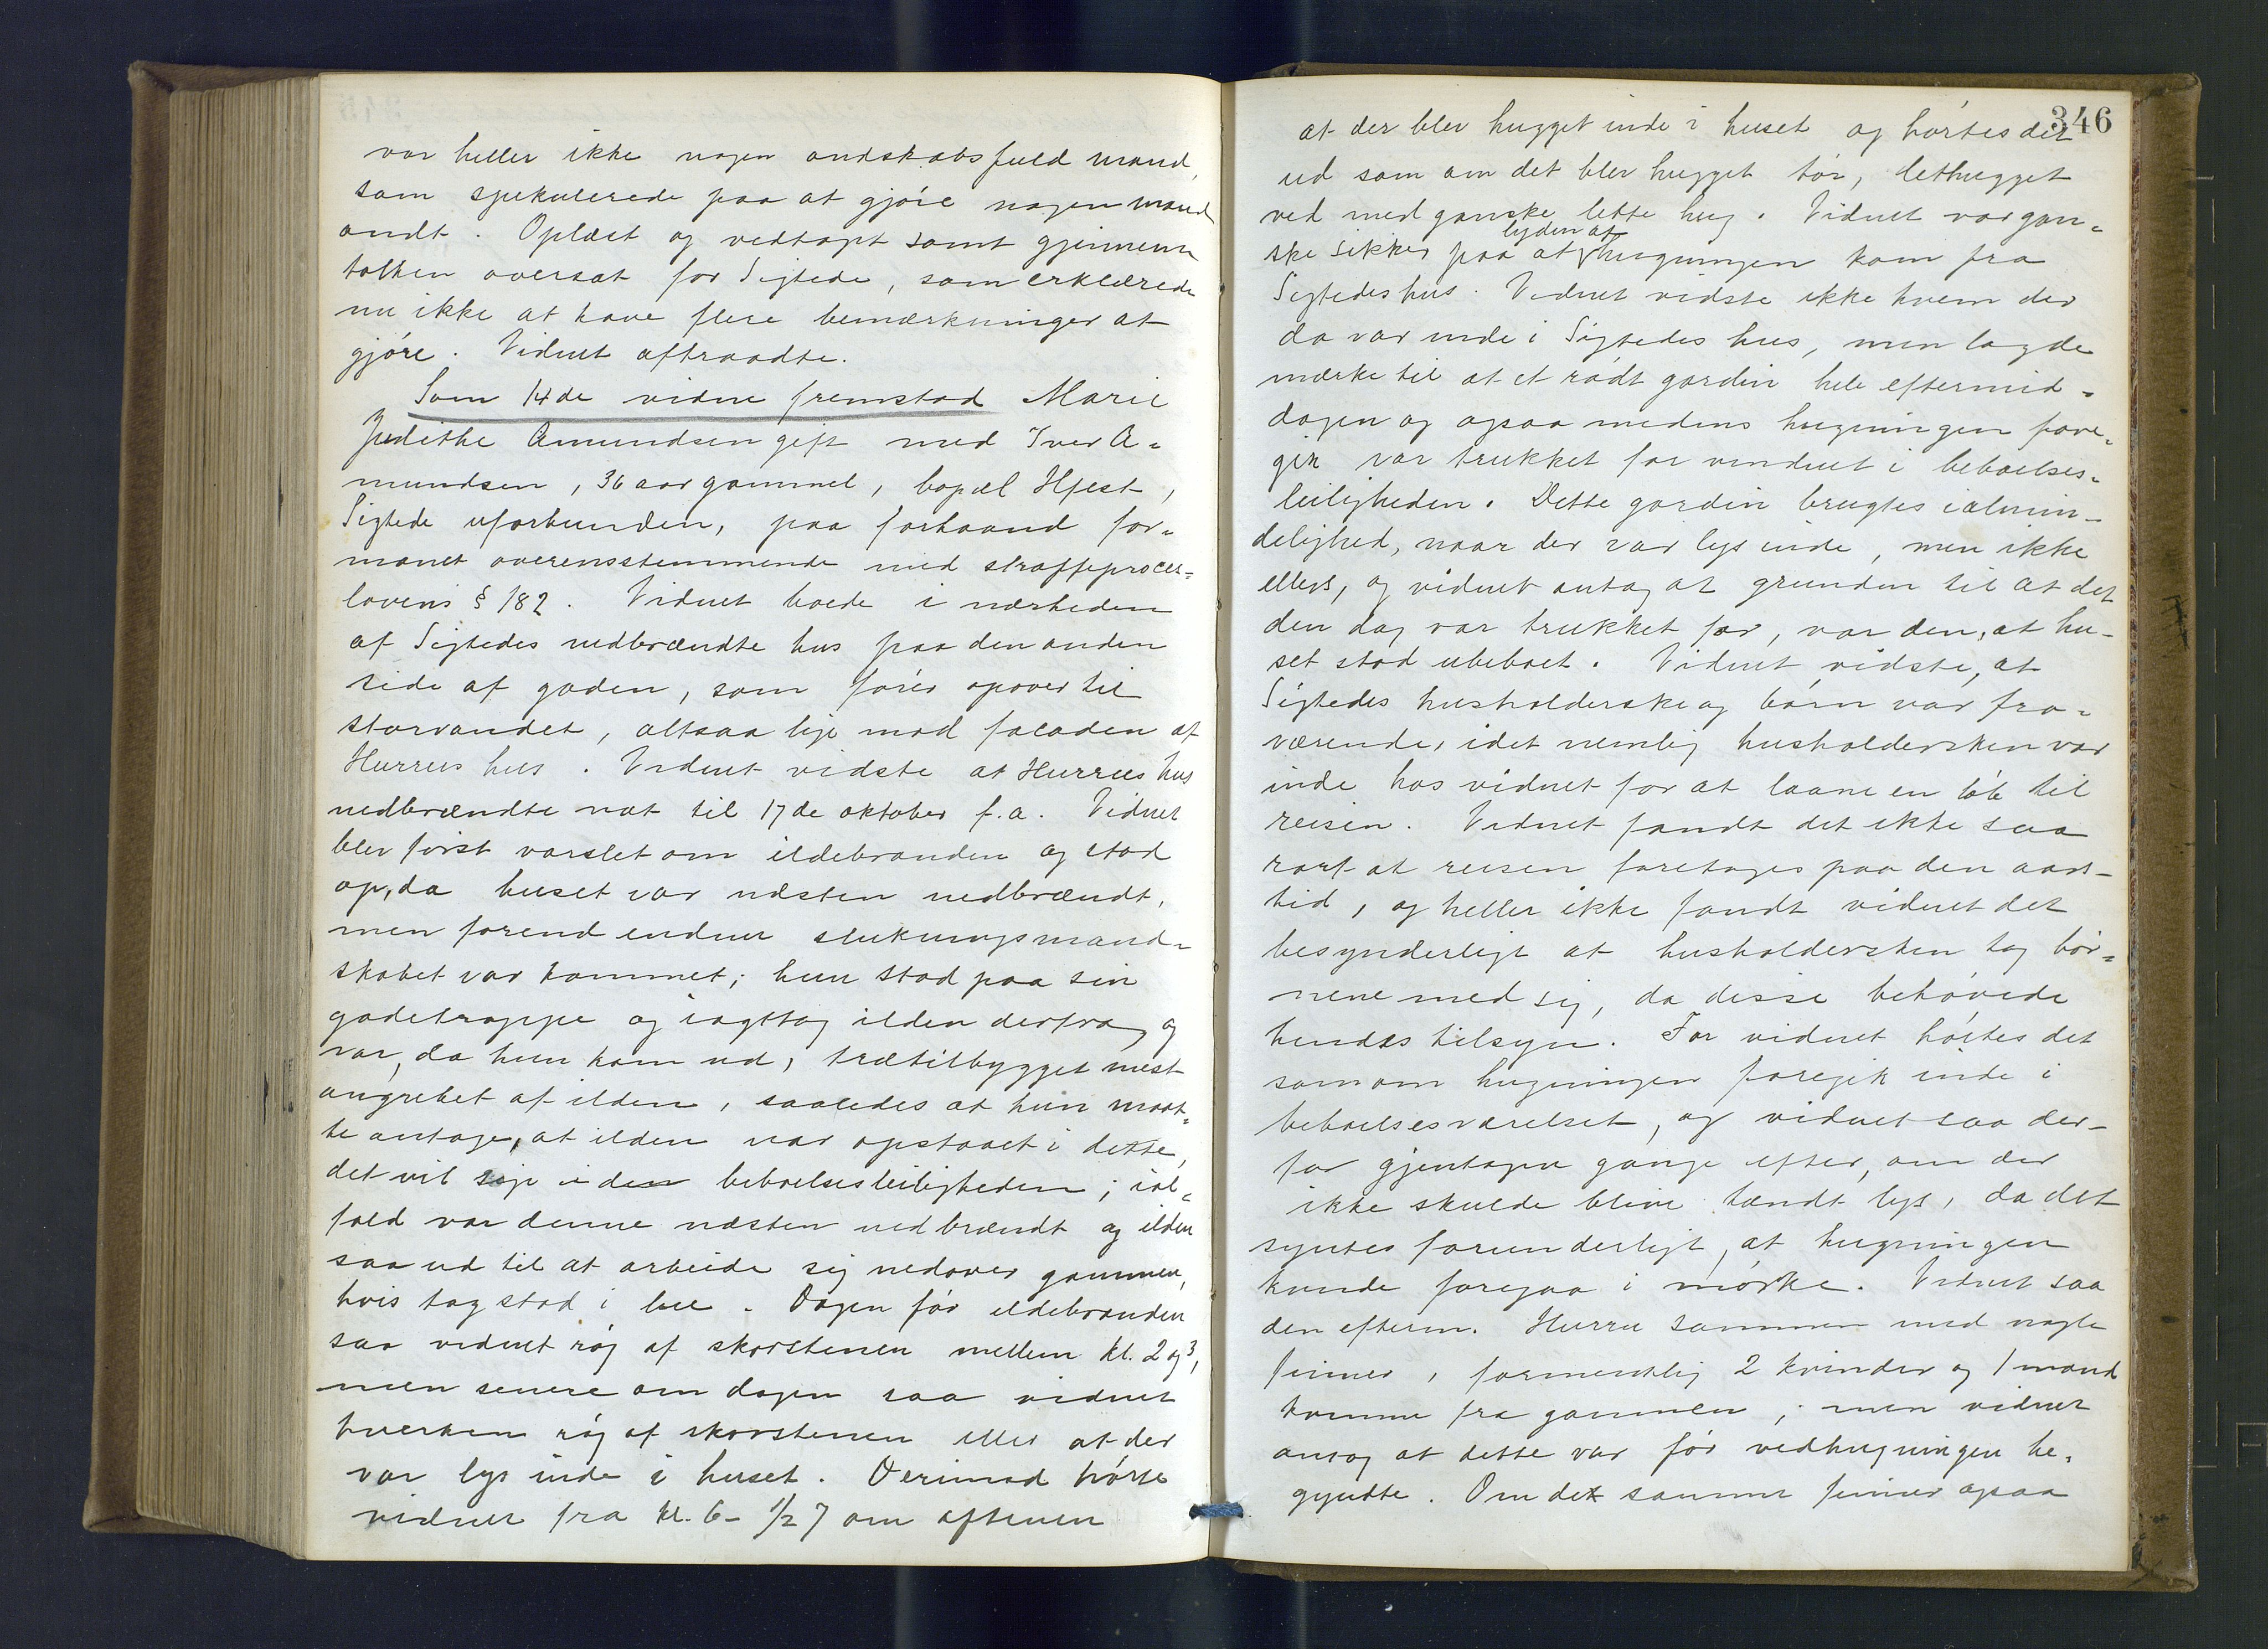 var heller ikke nogen ondskabsfuld mand,
som spekulerede paa at gjøre nogen mand
ondt. Oplæst og vedtaget samt gjennem
tolken oversat for Sigtede, som erklærede
nu ikke at have flere bemærkninger at
gjøre. Vidnet aftraadte.
Som 14de vidne fremstod Marie
Judithe Amundsen gift med Iver A=
mundsen, 36 aar gammel, bopæl Hfest,
Sigtede uforbunden, paa forhaand for=
manet overensstemmende med straffeproces=
lovens § 182. Vidnet boede i nærheden
af Sigtedes nedbrændte hus paa den anden
side af gaden, som fører opover til
Storvandet, altsaa lige mod facaden af
Hurrus hus. Vidnet vidste at Hurrus hus
nedbrændte nat til 17de oktober f.a. Vidnet
blev først varslet om ildebranden og stod
op, da huset var næsten nedbrændt,
men førend endnu slukningsmand=
skabet var kommet; hun stod paa sin
gadetrappe og iagttog ilden derfra, og
var, da hun kom ud, trætilbygget mest
angrebet af ilden, saaledes at hun maat=
te antage, at ilden var opstaaet i dette,
det vil sige i den beboelsesleiligheden; ial=
fald var denne næsten nedbrændt og ilden
saa ud til at arbeide sig nedover gammen,
hvis tag stod i lue. Dagen før ildebranden
saa vidnet røg af skorstenen mellem kl. 2 og 3,
men senere om dagen saa vidnet
hverken røg af skorstenen eller at der
var lys inde i huset. Derimod hørte
vidnet fra kl. 6 - 1/2 7 om aftenen
346
at der blev hugget inde i huset og hørtes det
ud som om det blev hugget tør, lethugget
ved med ganske lette hug. Vidnet var gan=
ske sikker paa at lyden af hugningen kom fra
Sigtedes hus. Vidnet vidste ikke hvem der
da var inde i Sigtedes hus, men lagde
mærke til at et rødt gardin hele eftermid=
dagen og ogsaa medens hugningen fore=
gik var trukket for vinduet i beboelses=
leiligheden. Dette gardin brugtes ialmin=
delighed, naar der var lys inde, men ikke
ellers, og vidnet antog at grunden til at det
den dag var trukket for, var den, at hu=
set stod ubeboet. Vidnet vidste, at
Sigtedes husholderske og børn var fra=
værende, idet nemlig husholdersken var
inde hos vidnet for at laane en til
reisen. Vidnet fandt det ikke saa
rart at reisen foretages paa den aars=
tid, og heller ikke fandt vidnet det
besynderligt at husholdersken tog bør=
nene med sig, da disse behøvede
hendes tilsyn. For vidnet hørtes det
som om hugningen foregik inde i
beboelsesværelset, og vidnet saa der=
for gjentagne gange efter, om der
ikke skulde blive tændt lys, da det
syntes forunderligt, at hugningen
kunde foregaa i mørke. Vidnet saa
den efterm. Hurru sammen med nogle
finner, formentlig 2 kvinder og 1 mand
komme fra gammen, men vidnet
antog at dette var før vedhugningen be=
gyndte. Om det samme finner ogsaa